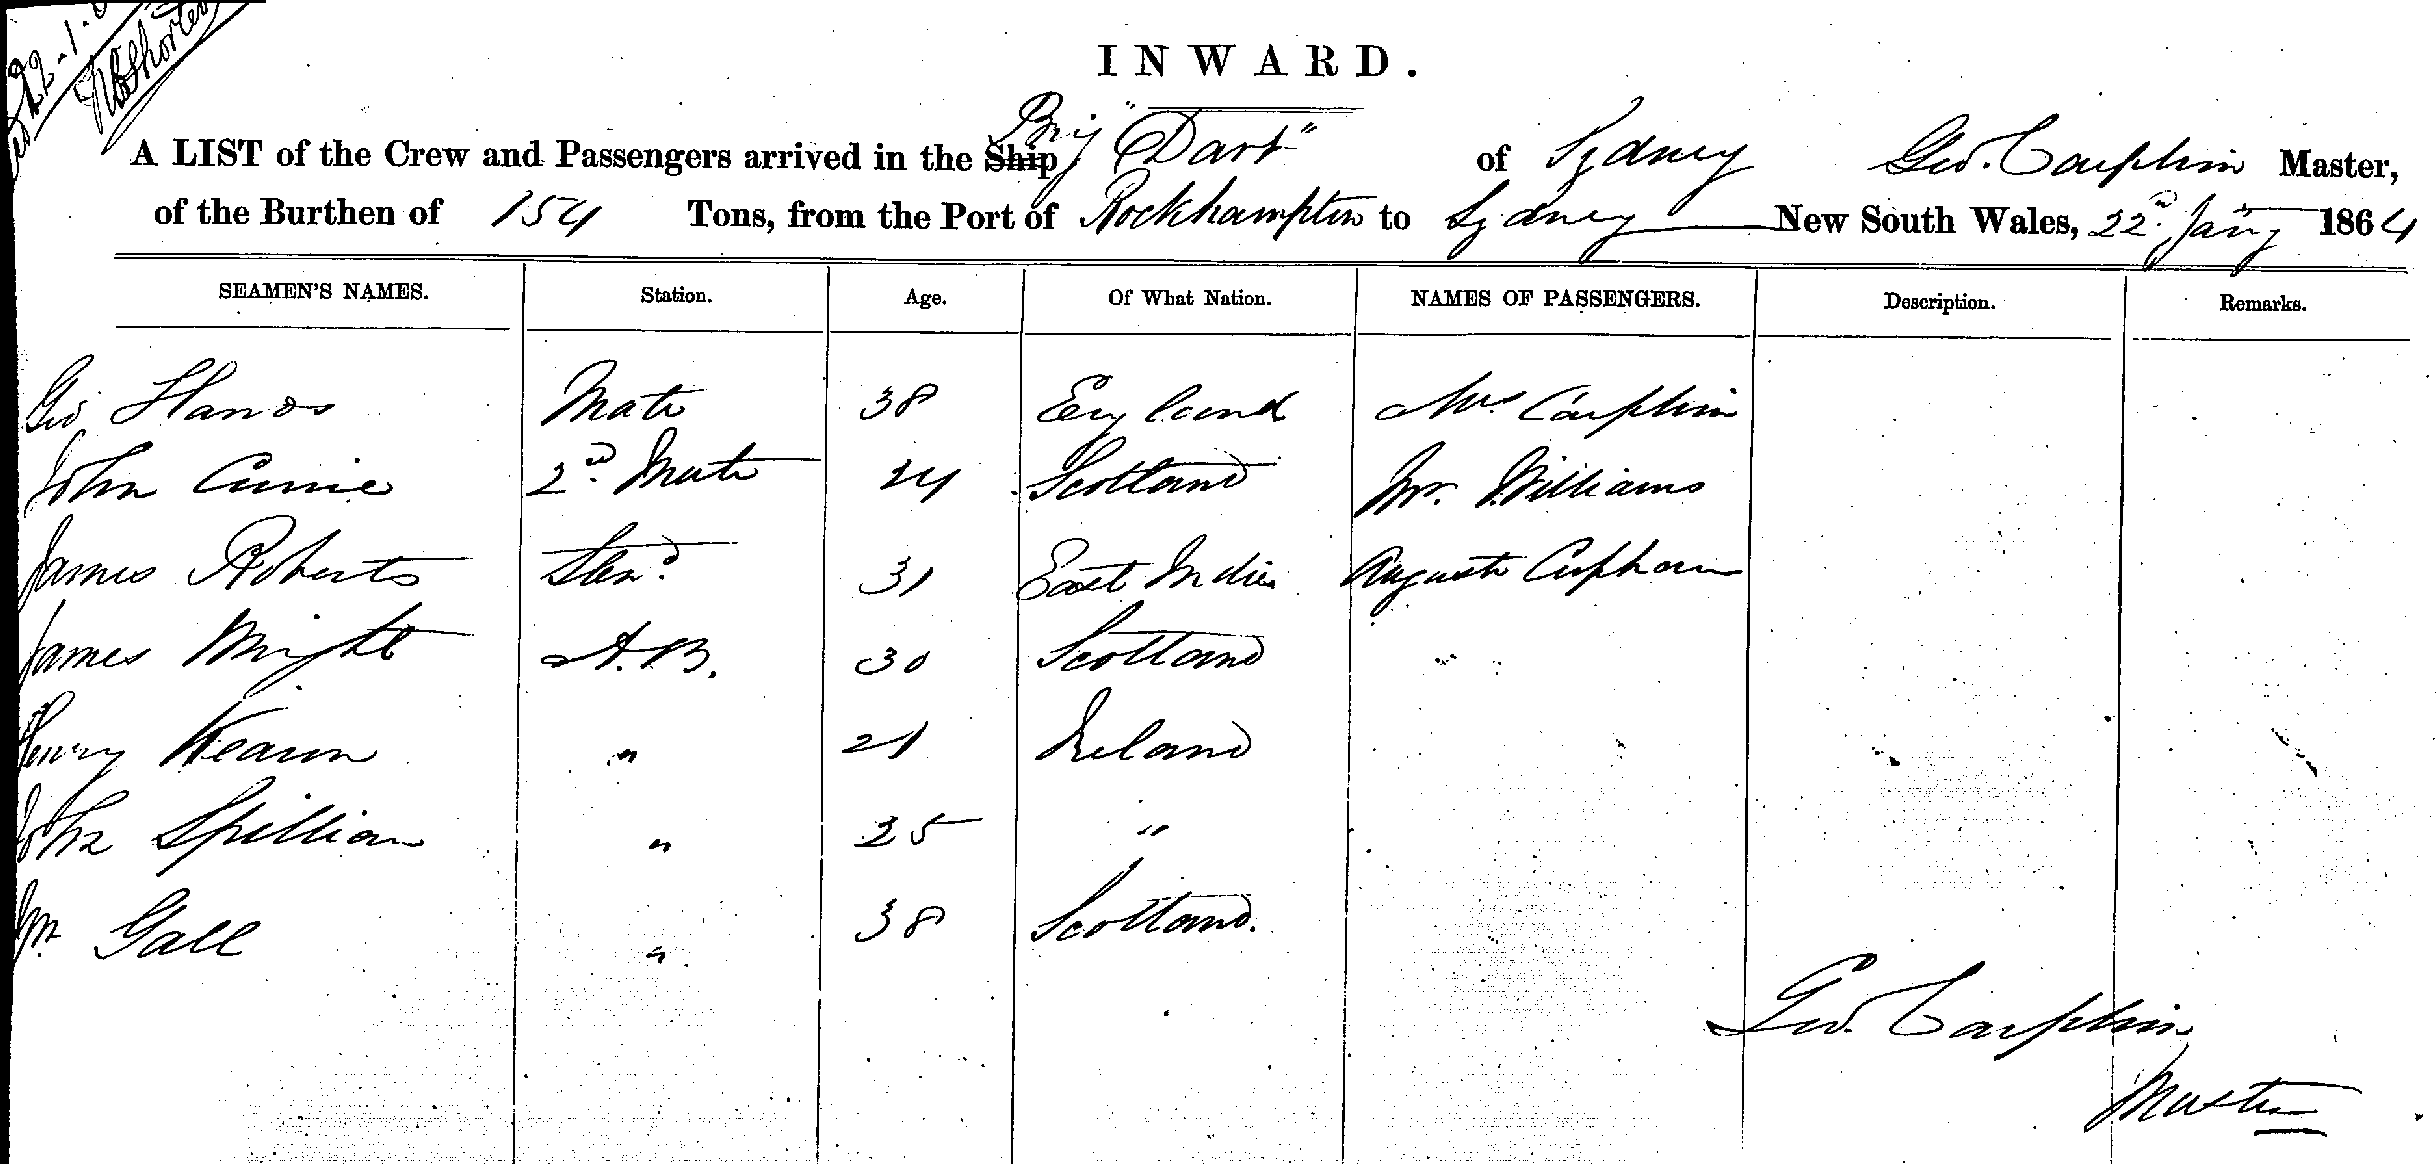 22.1.
INWARD.
A LIST of the Crew and Passengers arrived in the Ship Brig "Dart" of Sydney Geo. Carphin Master,
of the Burthen of 154 Tons, from the Port of Rockhampton to Sydney New South Wales, 22nd Jany 1864
SEAMEN'S NAMES. Station. Age. Of What Nation. NAMES OF PASSENGERS. Description. Remarks.
Geo Hands Mate 38 England Mrs Carphin
John Currie 2nd Mate 24 Scotland Mr. Williams
James Roberts Stewd 31 East Indies Auguste
James Wright A.B. 30 Scotland
Henry Kearon " 21 Ireland
John Spillian " 25 "
Wm Gall " 38 Scotland.
Geo. Carphin
Master